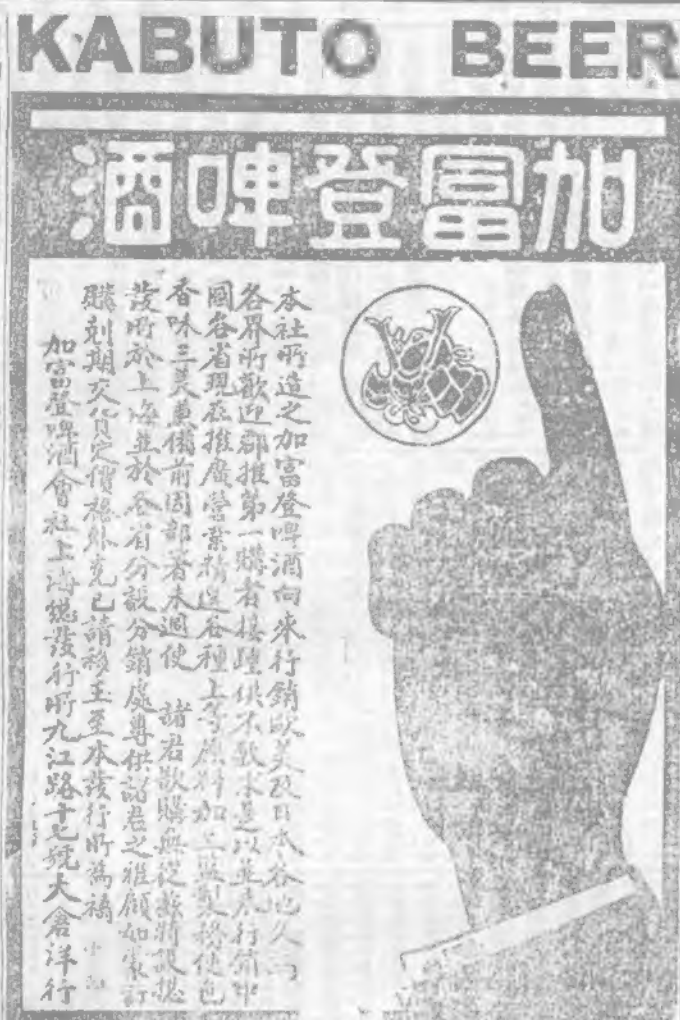 KABUTO BEER
加富登啤酒
本社所造之加富登啤酒向来行銷歐美及日本各地久為
各界所歡迎群推第一購者接踵供不敷求是以並未行銷中
國各省現在推廣營業精選各種上等原料加工監製務使色
香味三美兼備前因部署未週使 諸君欲購無從茲特設總
發所於上海並於各省分設分銷處專供諸君之雅顧如蒙訂
購剋期交貨定價格外克己請移玉至本發行所為禱
加富登啤酒會社上海總發行所九江路十七號大倉洋行